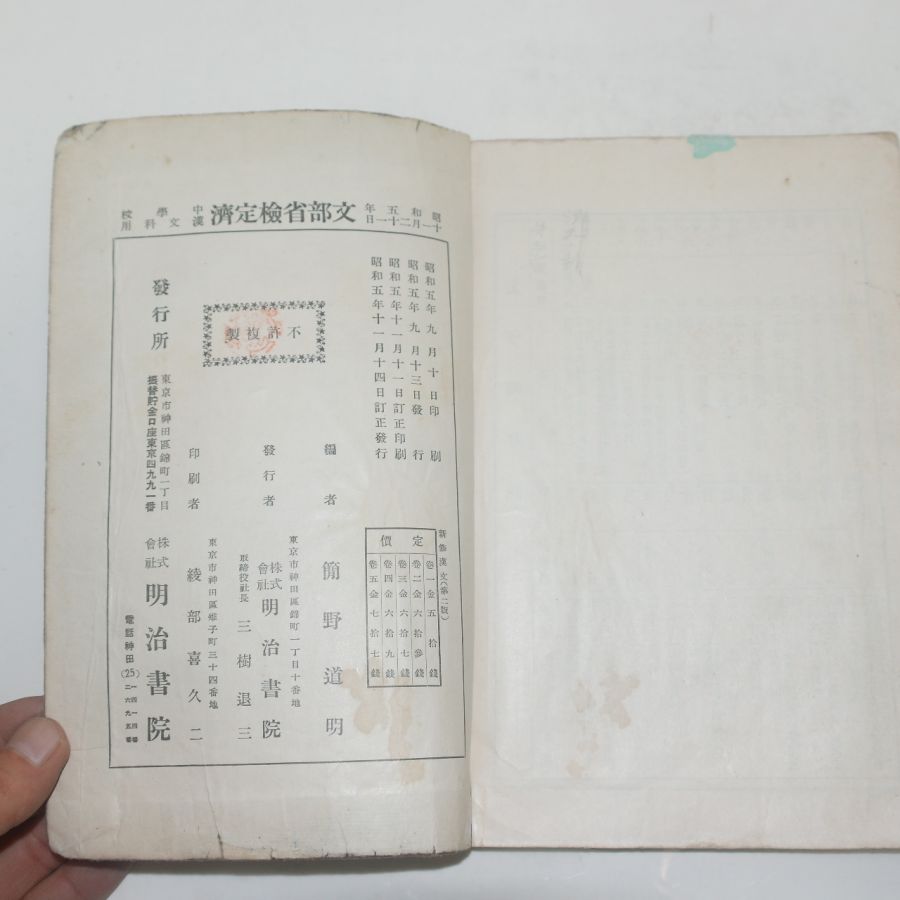 昭和五年十一月二十一日
文部省檢定濟
中學校漢文科用
昭和五年九月十日印刷
昭和五年九月十三日發行
昭和五年十一月十一日訂正印刷
昭和五年十一月十四日訂正發行
新修漢文(第二版)
定價
卷一金五拾錢
卷二金六拾參錢
卷三金六拾七錢
卷四金六拾九錢
卷五金七拾七錢
不許複製
編者 簡野道明
東京市神田區錦町一丁目十番地
發行者 株式會社 明治書院
取締役社長 三樹退三
東京市神田區雉子町三十四番地
印刷者 綾部喜久二
發行所
東京市神田區錦町一丁目
振替貯金口座東京四九九一番
株式會社 明治書院
電話神田(25)